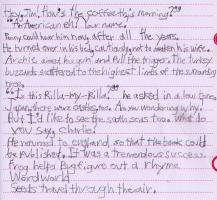 Hey, Tim, how's the coffee this morning?"
"An American all our name.
Pony could war him many, after all the years.
He turned error in his body, cautiously not to awaken his wife.
Archie aimed his gun and pull the trigger. The turkey
buzzards scattered to the highest limbs of the surrounding
trees.
"Is this Rilla-my-Rilla?" he asked in a low tone.
Japan, there were others, too. An you wondering why?
But I'd like to see the south seas too. What do
you say, Charlie?
He returned to England, so that the book could
be published. It was a tremendous success.
Frog helps Pug figure out a rhyme
Wordworld
Seeds travel through the air.